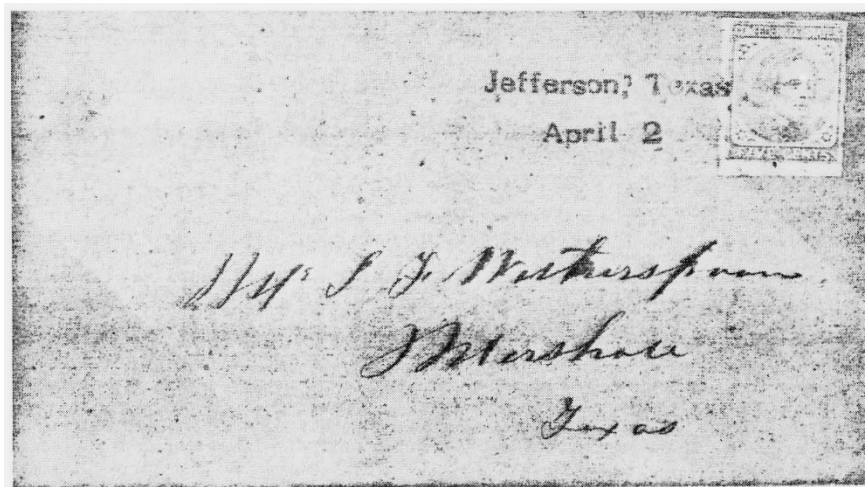 Jefferson, Texas
April 2
Mr S. F. Witherspoon
Marshall
Texas